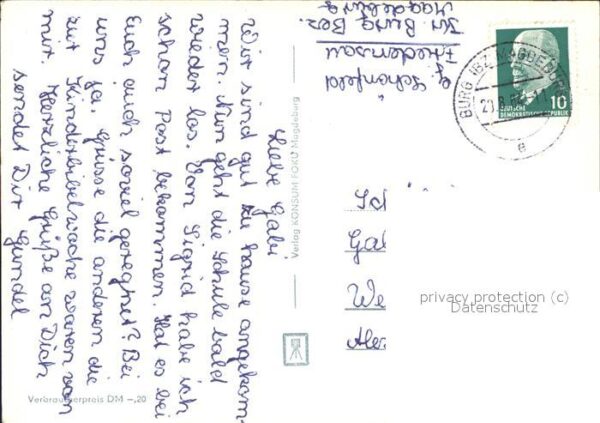 Liebe Gabi
Wir sind gut zu hause angekom-
men. Nun geht die Schule bald
wieder los. Von Sigrid habe ich
schon Post bekommen. Hat es bei
Euch auch soviel geregnet? Bei
uns ja. Grüsse die anderen die
zur Kinderbibelwoche waren von
mir. Herzliche Grüße an Dich
sendet Dir Gundel
G. Schönfeld
Friedensau
Kr. Burg Bez.
Magdeburg
Verlag KONSUM FOKU Magdeburg
Verbraucherpreis DM -,20
BURG (BZ. MAGDEBURG)
e
10
DEUTSCHE
DEMOKRATISCHE REPUBLIK
Gal
We
privacy protection (c)
Datenschutz